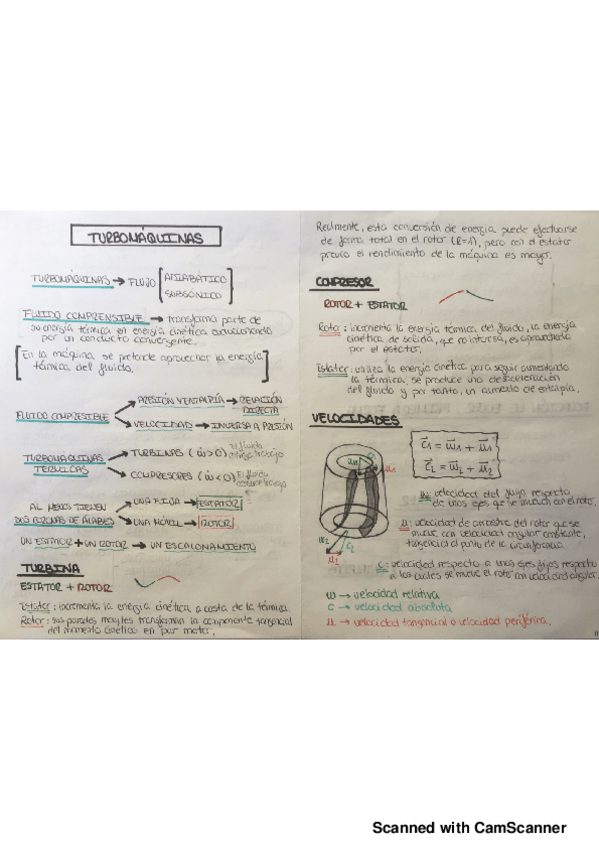 TURBOMÁQUINAS
TURBOMÁQUINAS → FLUJO [ADIABÁTICO
SUBSÓNICO]
FLUIDO COMPRENSIBLE → transforma parte de
su energía térmica en energía cinética evolucionando
por un conducto convergente.
[En la máquina se pretende aprovechar la energía
térmica del fluido.]
FLUIDO COMPRESIBLE
PRESIÓN Y ENTALPÍA → RELACIÓN
DIRECTA
VELOCIDAD → INVERSA A PRESIÓN
TURBOMÁQUINAS
TÉRMICAS
TURBINAS (ẇ>0) El fluido
trabajo
COMPRESORES (ẇ<0) El fluido
AL MENOS TIENEN
DOS CORONAS DE ÁLABES
UNA FIJA → ESTATOR
UNA MÓVIL → ROTOR
UN ESTATOR + UN ROTOR → UN ESCALONAMIENTO
TURBINA
ESTATOR + ROTOR
Estator: incrementa la energía cinética a costa de la térmica.
Rotor: sus paredes moviles transforman la componente tangencial
del momento cinético en par motor.
Realmente, esta conversión de energía puede efectuarse
de forma total en el rotor (R=1), pero con el estator
previo el rendimiento de la máquina es mayor.
COMPRESOR
ROTOR + ESTATOR
Rotor: incrementa la energía térmica del fluido, la energía
cinética de salida, que no interesa, es aprovechada
por el estator.
Estator: utiliza la energía cinética para seguir aumentando
la térmica, se produce una desaceleración
del fluido y por tanto, un aumento de entalpía.
VELOCIDADES
c₁ = w₁ + u₁
c₂ = w₂ + u₂
w₁
c₁
u₁
w₂
c₂
u₂
w: velocidad del flujo respecto
de unos ejes que se mueven con el rotor.
u: velocidad de arrastre del rotor que se
mueve con velocidad angular constante,
tangencial al punto de la circunferencia.
c: velocidad respecto a unos ejes fijos respecto
a los cuales se mueve el rotor con velocidad angular.
w → velocidad relativa
c → velocidad absoluta
u → velocidad tangencial o velocidad periférica.
Scanned with CamScanner